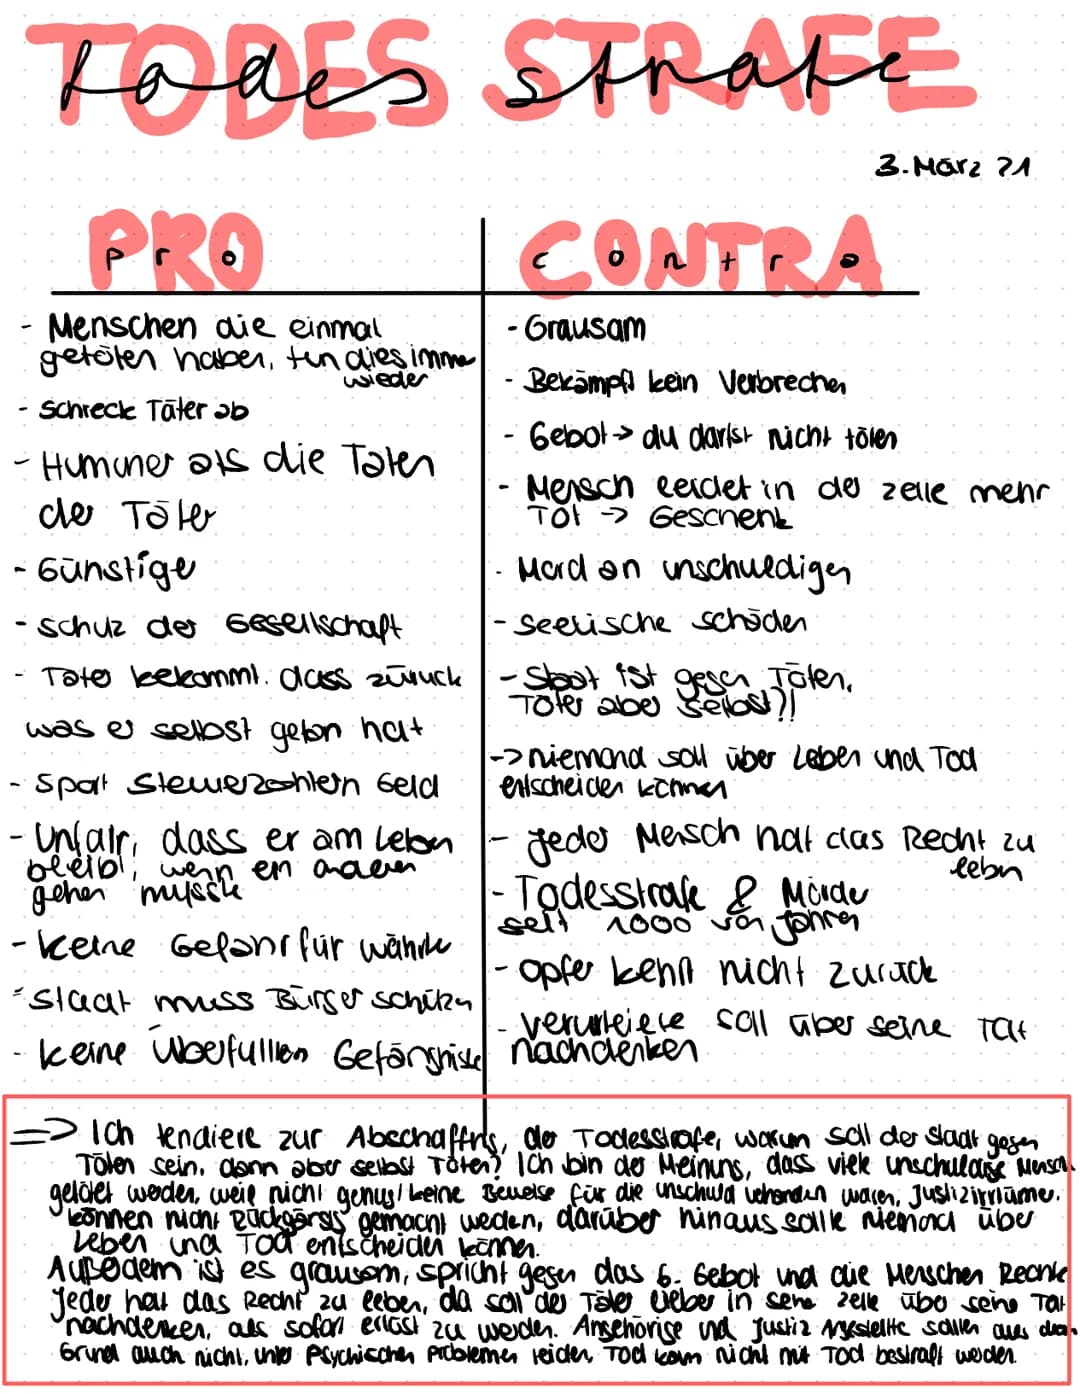 TODES STRAFE
Todes strafe
3. März 21
PRO
pro
CONTRA
contra
- Menschen die einmal
getöten haben, tun dies imme
wieder
- schreck Täter ab
- Humuner als die Taten
der Täter
- Günstiger
- schuz der Gesellschaft
- Täter bekommt. dass zurück
was er selbst geton hat
- spart steuerzahlern Geld
- Unfair, dass er am Leben
bleibt, wenn ein anderer
gehen musste
- keine Gefahr für
- staat muss Bürger schützn
- keine überfüllten Gefängnisse
- Grausam
- Bekämpft kein Verbrechen
- Gebot -> du darfst nicht töten
- Mensch leidet in der zelle mehr
Tot -> Geschenk
- Mord an unschuldigen
- seelische schäden
- Staat ist gegen Töten,
Töter aber selbst?!
-> niemand soll über Leben und Tod
entscheiden können
- jeder Mensch hat das Recht zu
lebn
- Todesstrafe & Mörder
seit 1000 von Jahren
- opfer kehrt nicht zurück
- soll über seine Tat
nachdenken
=> Ich tendiere zur Abschaffng, der Todesstrafe, warum soll der Staat gegen
Töten sein, dann aber selbst Töten? Ich bin der Meinung, dass viele unschuldige Mensch.
getötet werden, weil nicht genug/keine Beweise für die unschuld vohanden waren, Justizirrtüme.
können nicht Rückgängig gemacht weden, darüber hinaus solle niemand über
Leben und Tod entscheiden können.
Außedem ist es grausam, spricht gegen das 6. Gebot und die Menschen Rechte
Jeder hat das Recht zu leben, da soll der Täter lieber in seine zelle übe seine Tat
nachdenken, als sofort erlöst zu werden. Angehörige und Justiz Angestellte sollen aus dem
Grund auch nicht, unter Psychischen Problemen leiden, Tod kann nicht mit Tod bestraft weden.